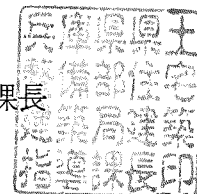 課長
兵庫県県土
整備部住宅
建築局建築
指導課長印